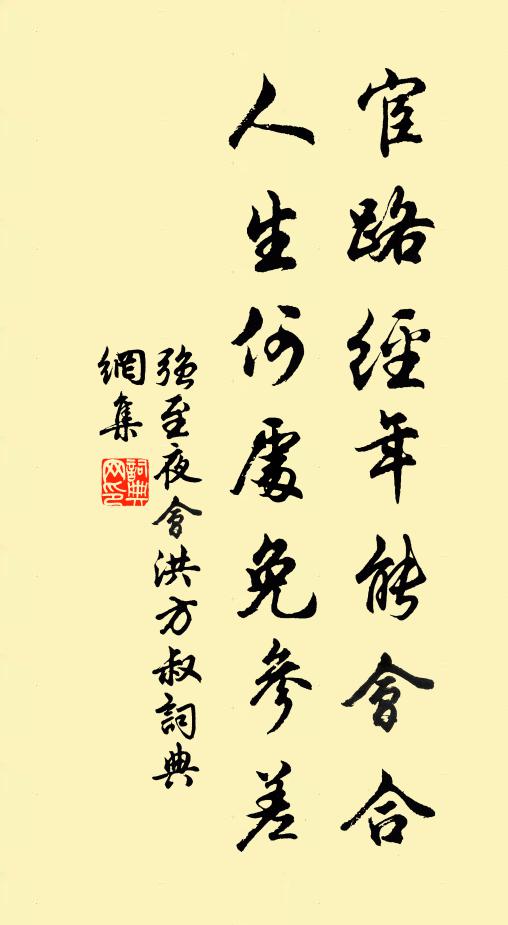 宦路經年能會合
人生何處免參差
強至夜會洪方叔詞典
網集
詞典
网印